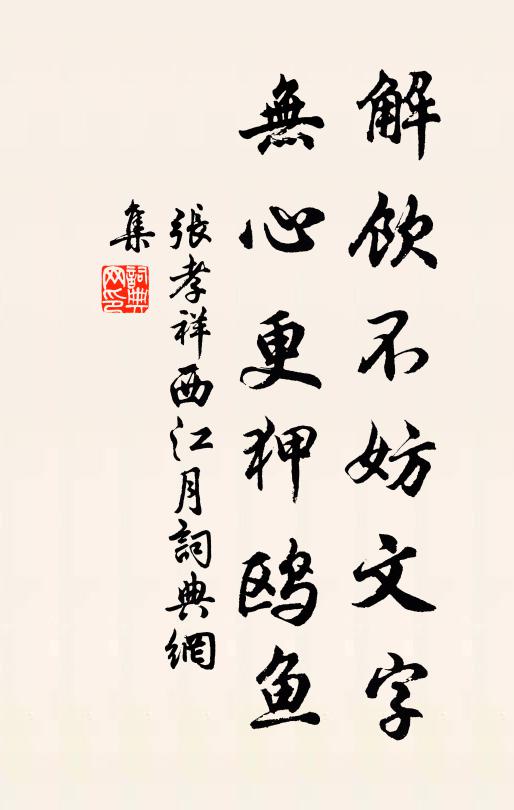 解飲不妨文字
無心更狎鸥鱼
張孝祥西江月詞典網
集
詞典網印